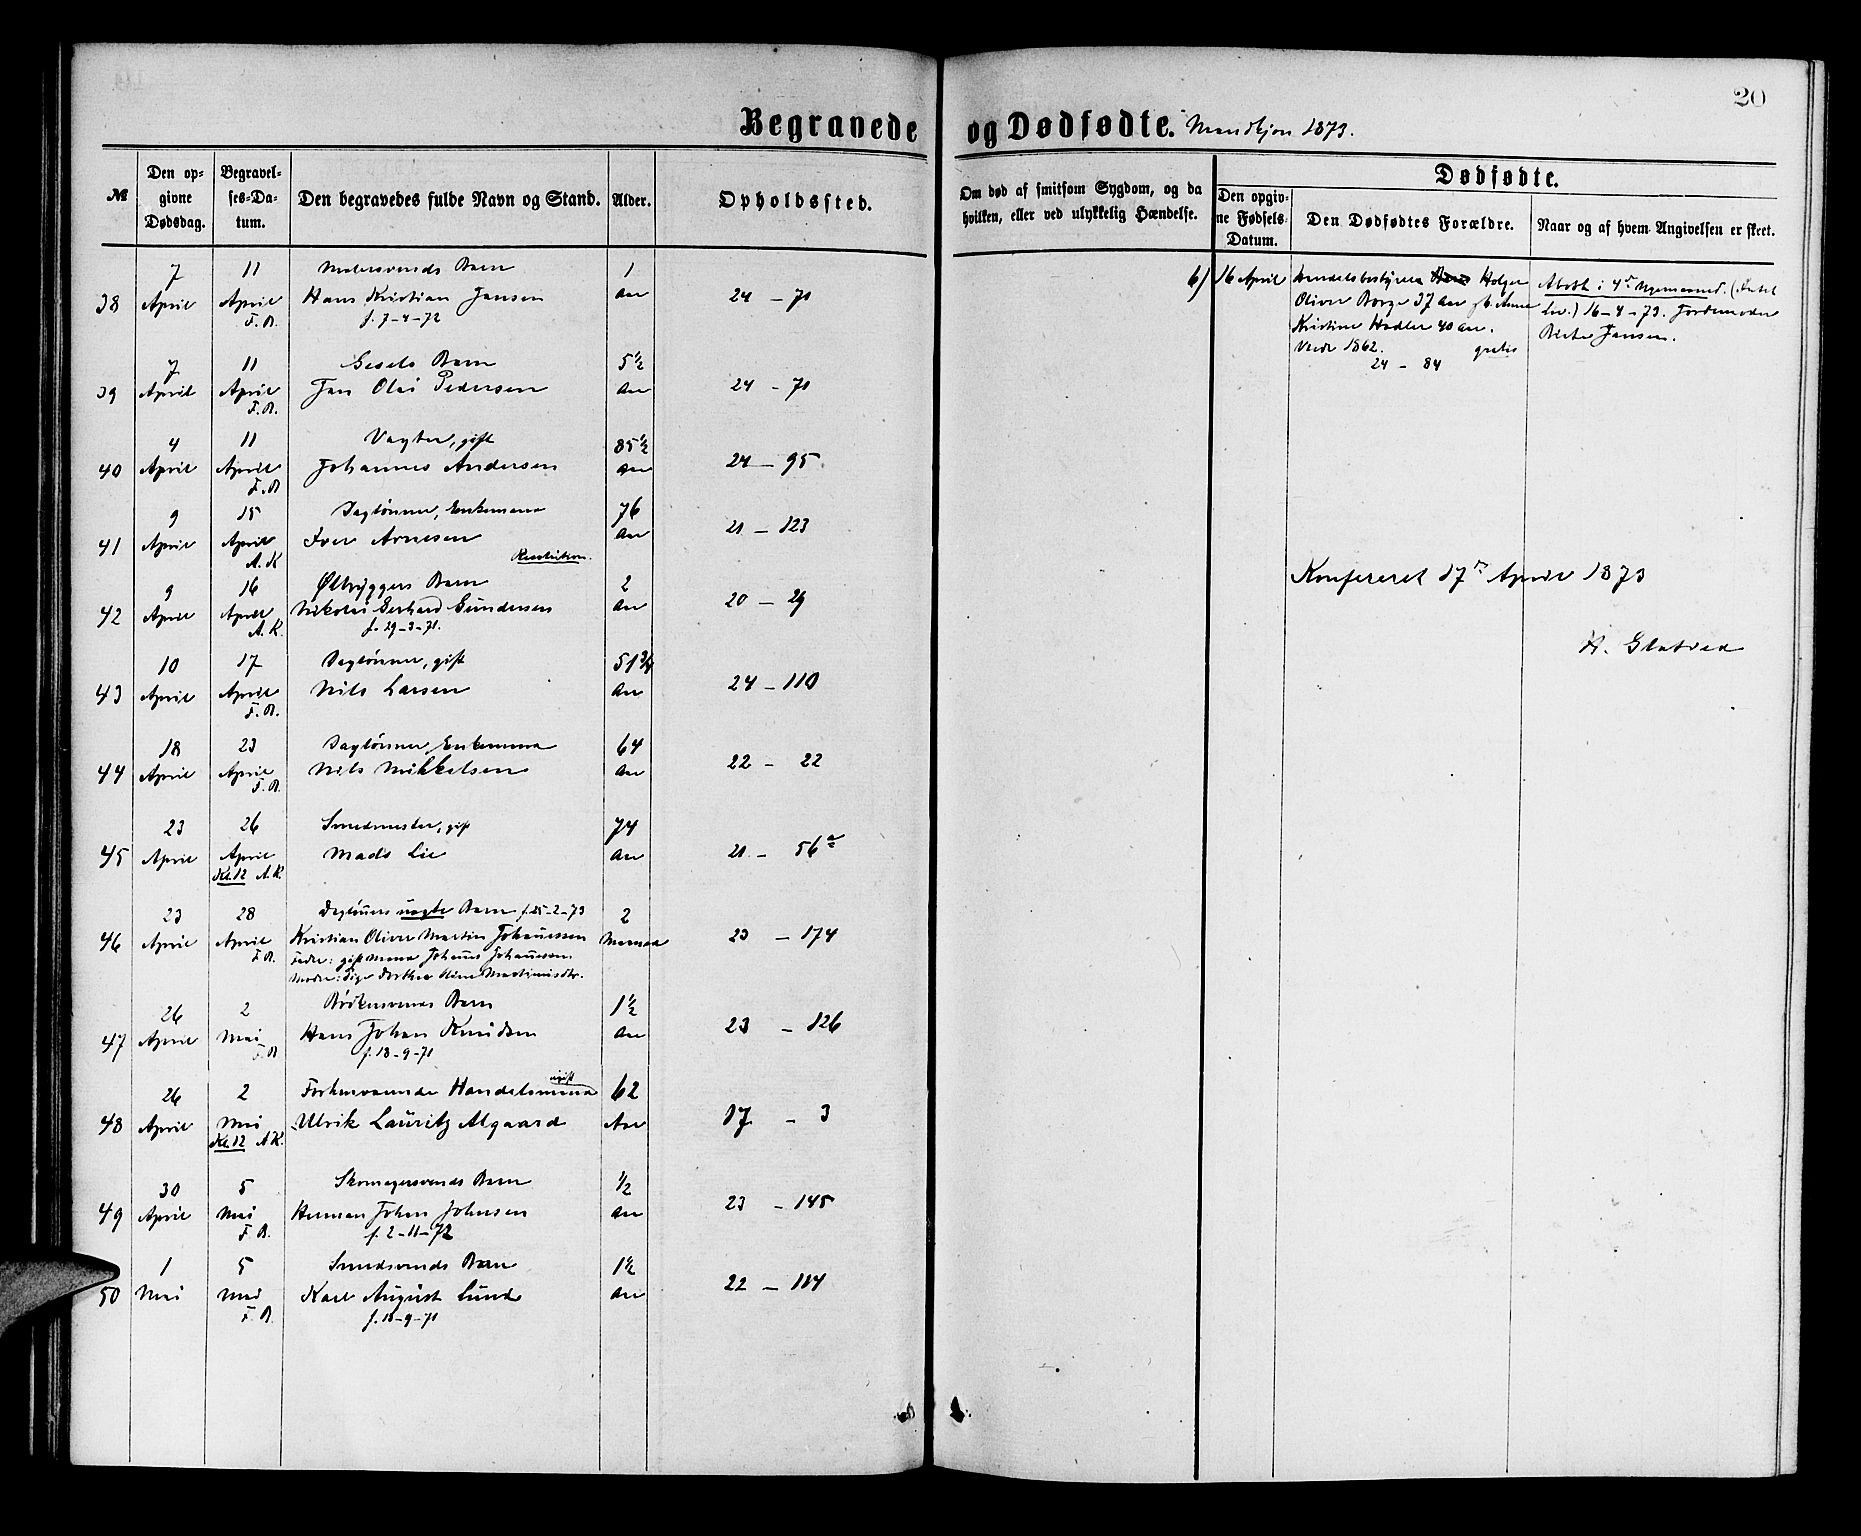 20
Begravede og Dødfødte. Mandkjøn 1873.
№
Den opgivne Dødsdag.
Begravelses-Datum.
Den begravedes fulde Navn og Stand.
Alder.
Opholdssted.
Om død af smitsom Sygdom, og da hvilken, eller ved ulykkelig Hændelse.
Dødfødte.
Den opgivne Fødsels-Datum.
Den Dødfødtes Forældre.
Naar og af hvem Angivelsen er skeet.
7 11 Malersvends Barn 1
38 April April Hans Kristian Jansen Aar 24 - 71
F. B. f. 7-4-72
7 11 Gesels Barn 5½
39 April April Jan Olai Pedersen Aar 24 - 71
F. B.
4 11 Vægter, gift 85½
40 April April Johannes Andersen Aar 24 - 95
F. B
9 15 Daglønner, Enkemand 76
41 April April Iver Arnesen Aar 21 - 123
A. K
9 16 Ølbryggers Barn 2
42 April April Nikolai Gerhard Gundersen Aar 20 - 29
A. K. f. 29-3-71.
10 17 Daglønner, gift 51¾
43 April April Nils Larsen Aar 24 - 110
F. B.
18 23 Daglønner, Enkemand 64
44 April April Nils Mikkelsen Aar 22 - 22
F. B.
23 26 Smedmester, gift 74
45 April April Mads Lie Aar 21 - 56a
Kl. 12 A. K.
23 28 Dagløners uægte Barn f. 25-2-73 2
46 April April Kristian Oliver Martin Johanessen Maaned 23 - 174
F. B. Fader: gift Mand Johanes Johanessen
Moder: Pige Dorthea Oline Martinusdtr.
26 2 Bødkersvends Barn 1½
47 April Mai Hans Johan Knudsen Aar 23 - 126
F. B f. 18-9-71
26 2 Forhenværende Handelsmand ugift 62
48 April Mai Ulrik Lauritz Algaard Aar 17 - 3
Kl. 12 A K.
30 5 Skomagersvends Barn ½
49 April Mai Herman Johan Johnsen Aar 23 - 145
F. B. f. 2-11-72
1 5 Smedsvends Barn 1½
50 Mai Mai Karl August Lund Aar 22 - 114
F. B. f. 18-9-71
6) 16 April Handelsbestyrer Hans Holger
Oliver Borge 37 Aar
Kristine Hadler 40 aar.
Viede 1862. gratis
24 - 84
Abort i 4de Maaned.
Liv.) 16-4-73. Jordemoder
Jansen.
Konfereret 17de April 1873